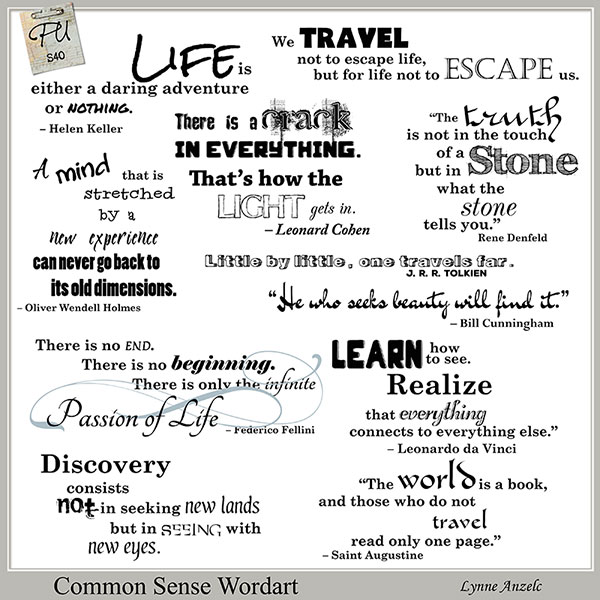 PU
S4O
LIFE is
either a daring adventure
or NOTHING.
– Helen Keller
We TRAVEL
not to escape life,
but for life not to ESCAPE us.
There is a crack
IN EVERYTHING.
That's how the
LIGHT gets in.
– Leonard Cohen
"The truth
is not in the touch
of a
but in Stone
what the
stone
tells you."
Rene Denfeld
A mind that is
stretched
by a
new experience
can never go back to
its old dimensions.
– Oliver Wendell Holmes
Little by little, one travels far.
J. R. R. TOLKIEN
"He who seeks beauty will find it."
– Bill Cunningham
There is no END.
There is no beginning.
There is only the infinite
Passion of Life
– Federico Fellini
LEARN how
to see.
Realize
that everything
connects to everything else."
– Leonardo da Vinci
Discovery
consists
not in seeking new lands
but in SEEING with
new eyes.
"The world is a book,
and those who do not
travel
read only one page."
– Saint Augustine
Common Sense Wordart
Lynne Anzelc